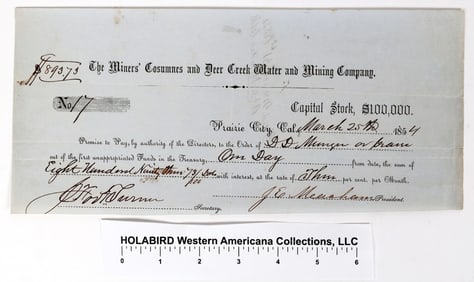 $893 73/ The Miners' Cosumnes and Deer Creek Water and Mining Company.
No. 17
Capital Stock, $100,000.
Prairie City, Cal. March 25th 1854
Promise to Pay, by authority of the Directors, to the Order of D. D. Munger or
out of the first unappropriated Funds in the Treasury, One Day from date, the sum of
Eight Hundred Ninety Three 73/100 Dols with interest, at the rate of Three per cent. per Month.
Secretary. J. E. Meacham President.
HOLABIRD Western Americana Collections, LLC
0 1 2 3 4 5 6